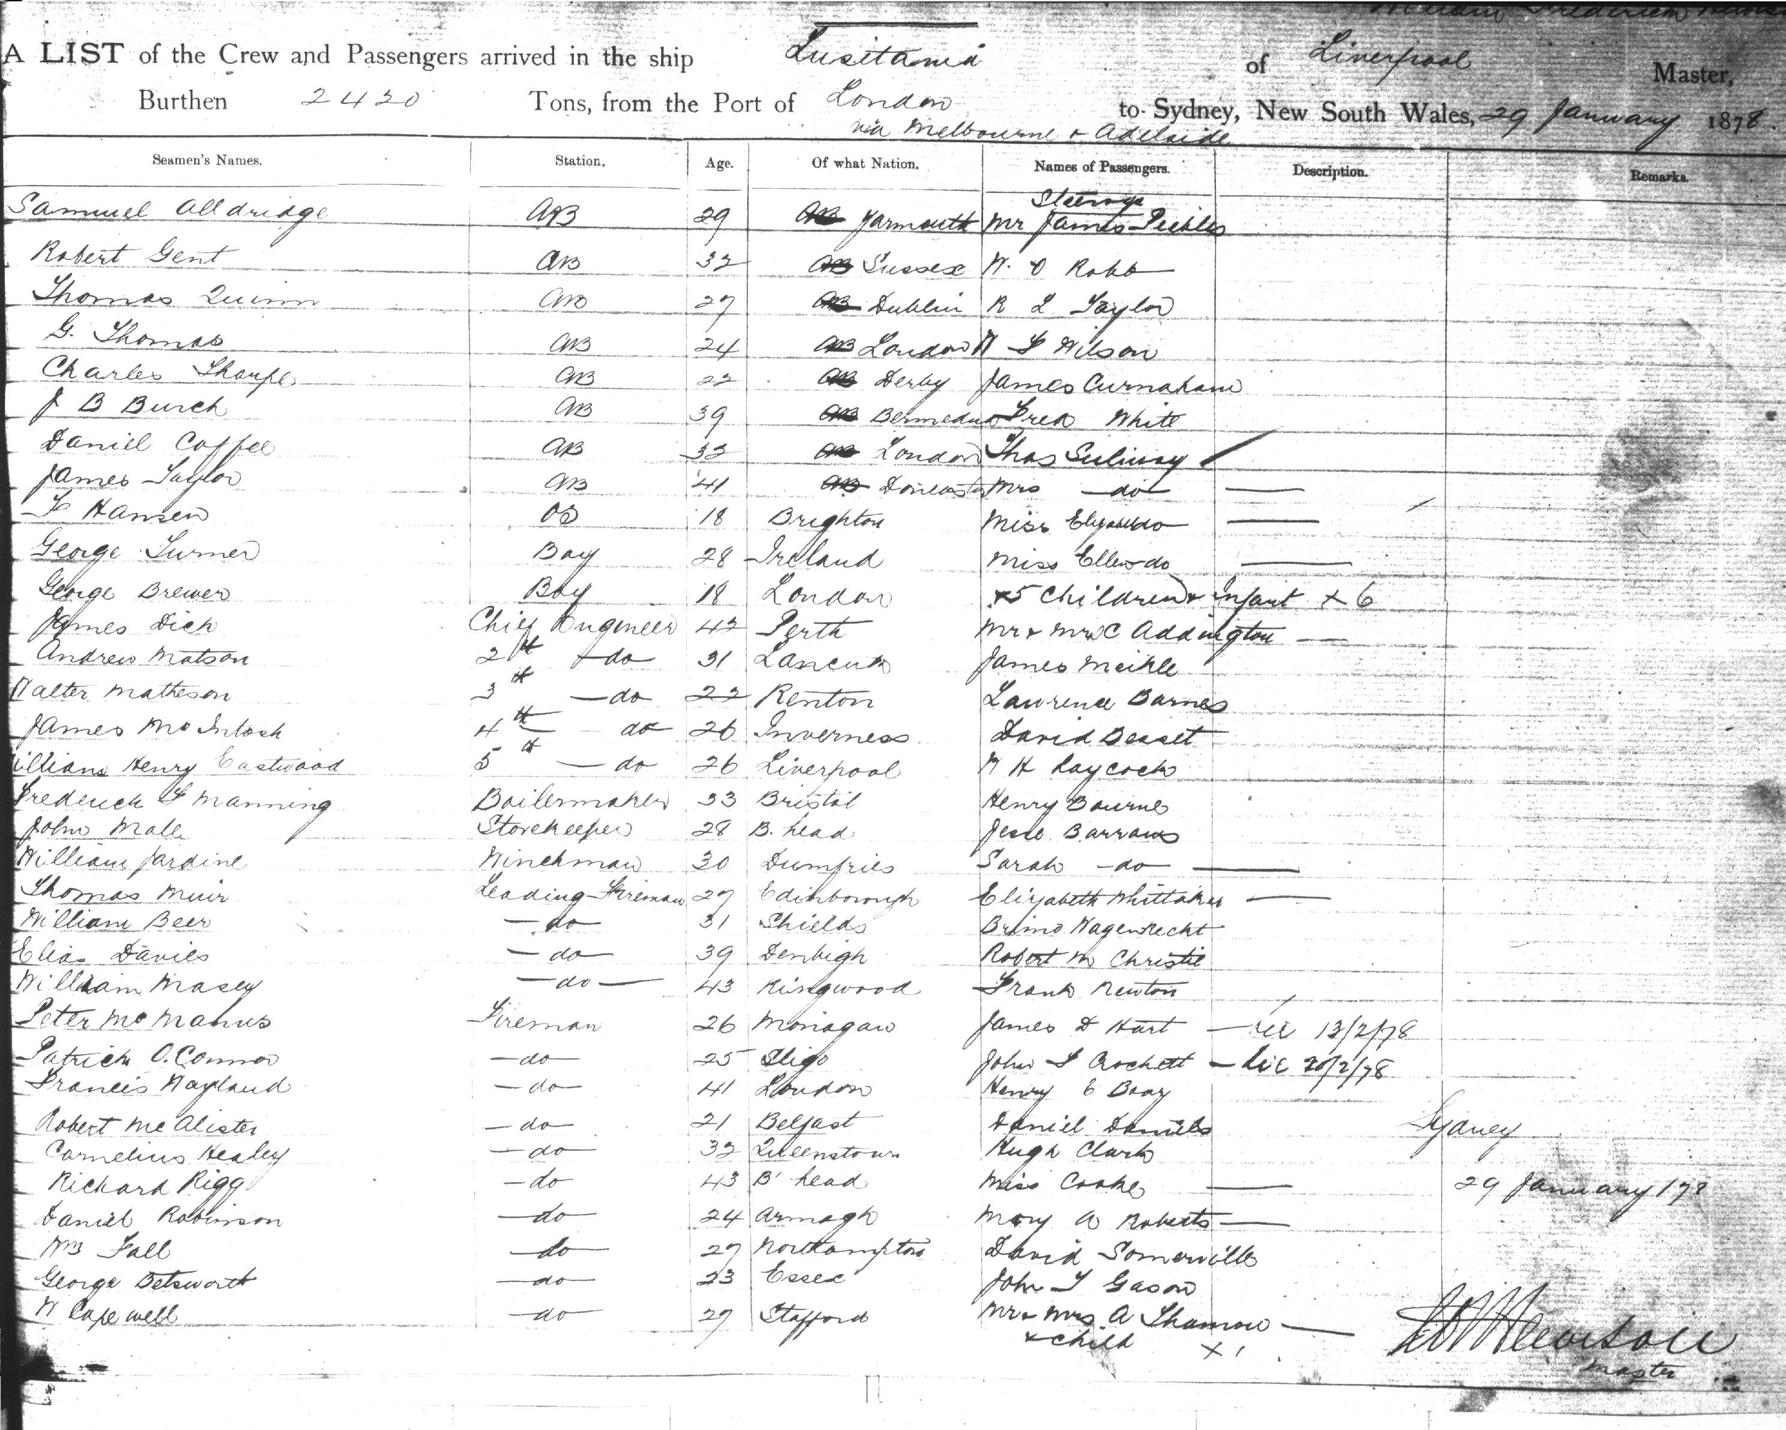 A LIST of the Crew and Passengers arrived in the ship Lusitania of Liverpool Master,
Burthen 2420 Tons, from the Port of London to Sydney, New South Wales, 29 January 1878.
via Melbourne & Adelaide
Seamen's Names. Station. Age. Of what Nation. Names of Passengers. Description. Remarks.
Steerage
Samuel Alldridge AB 29 AB Yarmouth Mr James Peebles
Robert Gent AB 32 AB Sussex W. O Robb
Thomas Quinn AB 27 AB Dublin R L Taylor
G. Thomas AB 24 AB London Wilson
Charles Thorpe AB 22 AB Derby James Curnaham
J B Burch AB 39 AB Bermeduda Fred White
Daniel Coffee AB 32 AB London Thos
James Taylor AB 41 AB Doncaster Mrs do
Hansen OS 18 Brighton Miss do
George Turner Boy 28 Ireland Miss Ellen do
George Brewer Boy 18 London + 5 Children & Infant + 6
James Dick Chief Engineer 42 Perth Mr & Mrs C Addington
Andrew Matson 2nd do 31 James Meikle
Walter Matheson 3 do 22 Renton Lawrence Barnes
James McIntosh 4th do 26 Inverness David Besset
William Henry Eastwood 5th do 26 Liverpool W H Laycock
Frederick Manning Boilermaker 33 Bristol Henry Bourne
John Male Storekeeper 28 B. head Jesse Barrows
William Jardine Winchman 30 Dumfries Sarah do
Thomas Muir Leading Fireman 27 Edinborough Elizabeth Whittaker
William Beer do 31 Shields Wagenrecht
Elias Davies do 39 Denbigh Robert M Christie
William Masey do 43 Ringwood Frank Newton
Peter McManus Fireman 26 Monagan James D Hart 13/2/78
Patrick O.Connor do 25 Sligo John Crockett 20/2/78
Francis Wayland do 41 London Henry E
Robert McAlister do 21 Belfast Daniel Daniels Sydney
Cornelius Healey do 32 Queenstown Hugh Clark
Richard Rigg do 43 B' head Miss Cooke 29 January /78
Daniel Robinson do 24 Armagh Mary A Roberts
Wm Fall do 27 Northampton David Somerville
George Betsworth do 23 Essex John Gason
W Capewell do 27 Stafford Mr & Mrs A
& Child + 1
Master